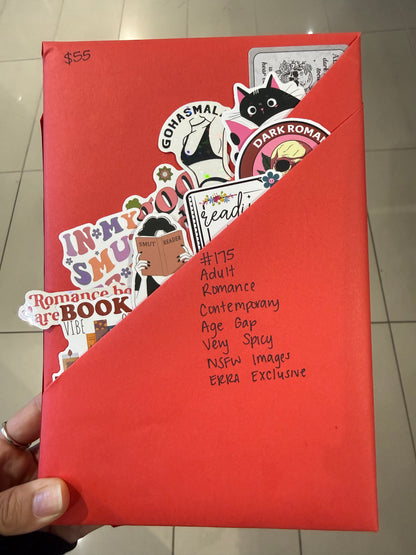 $55
GOHASMALL
DARK ROMA
TOO
readi
IN MY
SMUT
SMUT READER
Romance bo
are BOOK
VIBE
#175
Adult
Romance
Contemporary
Age Gap
Very Spicy
NSFW Images
ERRA Exclusive